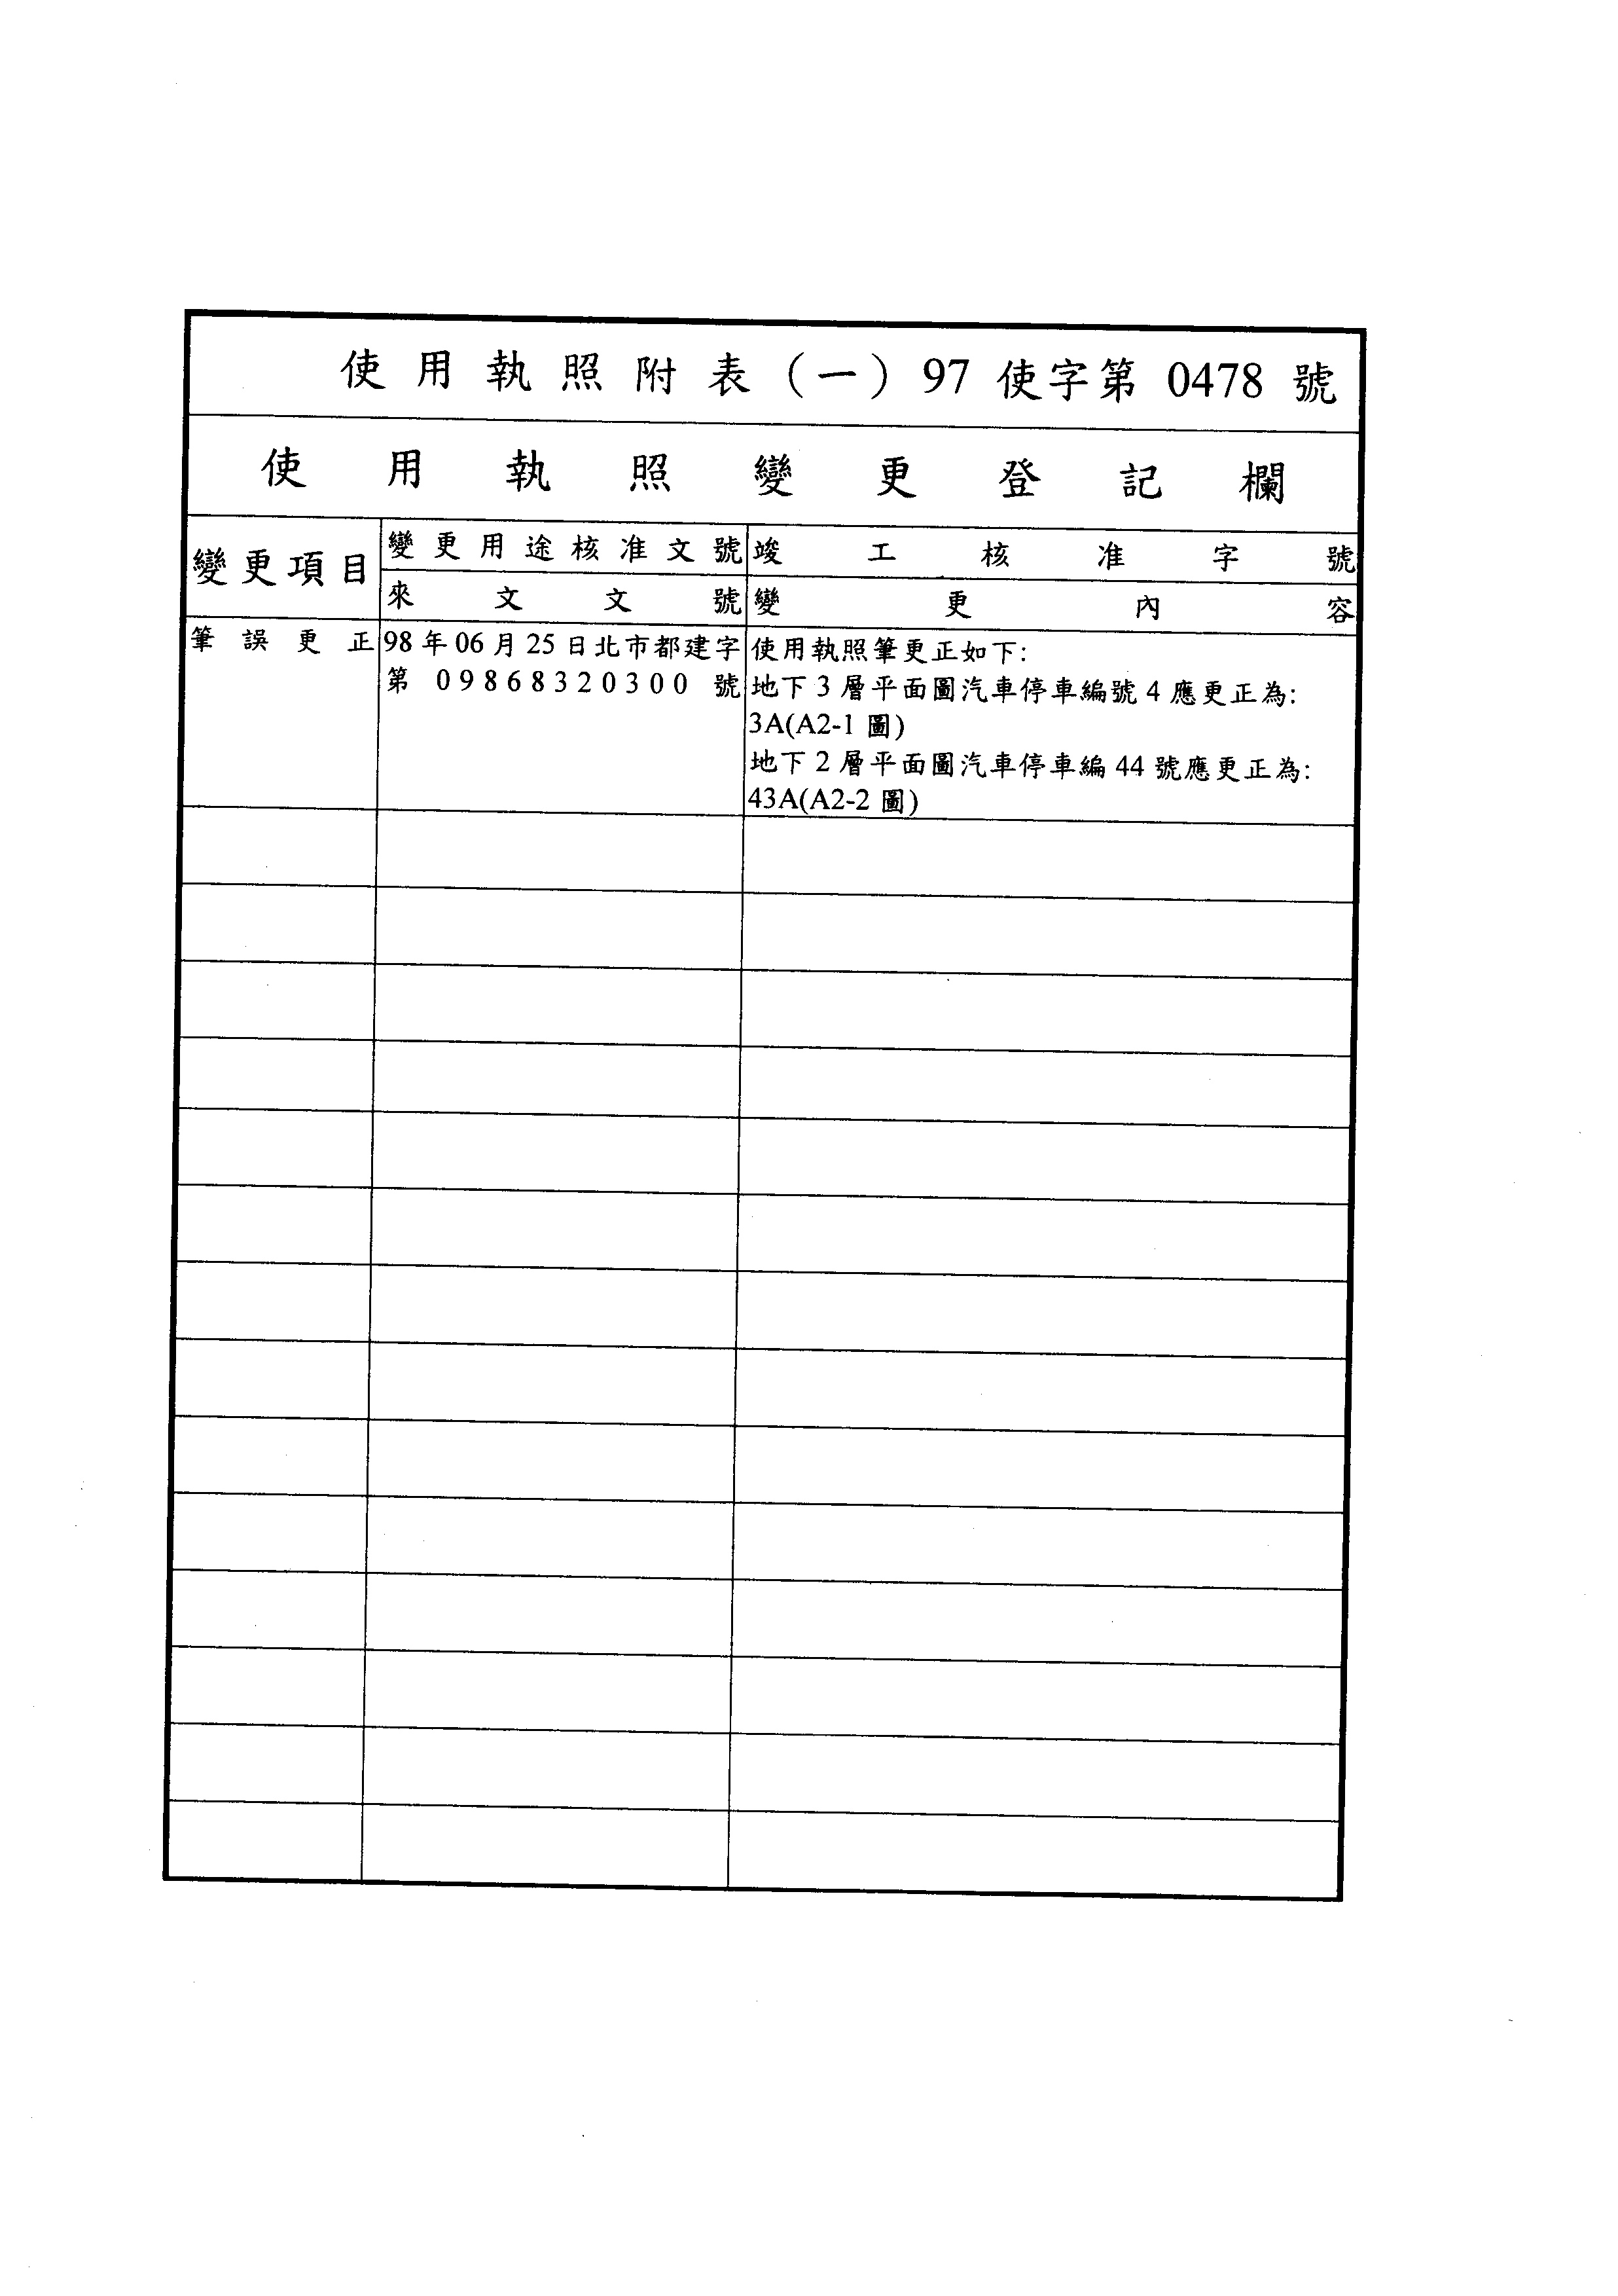 使用執照附表(一)97 使字第 0478 號
使用執照變更登記欄
變更項目
變更用途核准文號
竣工核准字號
來文文號
變更內容
筆誤更正
98 年 06 月 25 日北市都建字
第 09868320300 號
使用執照筆更正如下:
地下 3 層平面圖汽車停車編號 4 應更正為:
3A(A2-1 圖)
地下 2 層平面圖汽車停車編 44 號應更正為:
43A(A2-2 圖)